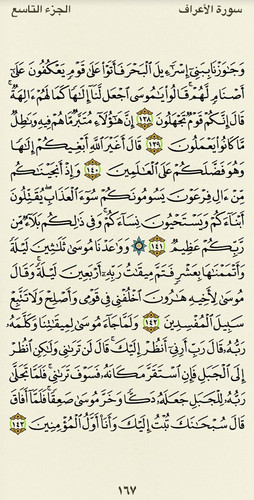 سورة الأعراف
الجزء التاسع
وَجَٰوَزْنَا بِبَنِيٓ إِسْرَٰٓءِيلَ ٱلْبَحْرَ فَأَتَوْا۟ عَلَىٰ قَوْمٍ يَعْكُفُونَ عَلَىٰٓ
أَصْنَامٍ لَّهُمْ ۚ قَالُوا۟ يَٰمُوسَى ٱجْعَل لَّنَآ إِلَٰهًا كَمَا لَهُمْ ءَالِهَةٌ ۚ
قَالَ إِنَّكُمْ قَوْمٌ تَجْهَلُونَ ١٣٨ إِنَّ هَٰٓؤُلَآءِ مُتَبَّرٌ مَّا هُمْ فِيهِ وَبَٰطِلٌ
مَّا كَانُوا۟ يَعْمَلُونَ ١٣٩ قَالَ أَغَيْرَ ٱللَّهِ أَبْغِيكُمْ إِلَٰهًا
وَهُوَ فَضَّلَكُمْ عَلَى ٱلْعَٰلَمِينَ ١٤٠ وَإِذْ أَنجَيْنَٰكُم
مِّنْ ءَالِ فِرْعَوْنَ يَسُومُونَكُمْ سُوٓءَ ٱلْعَذَابِ ۖ يُقَتِّلُونَ
أَبْنَآءَكُمْ وَيَسْتَحْيُونَ نِسَآءَكُمْ ۚ وَفِى ذَٰلِكُم بَلَآءٌ مِّن
رَّبِّكُمْ عَظِيمٌ ١٤١ ۞ وَوَٰعَدْنَا مُوسَىٰ ثَلَٰثِينَ لَيْلَةً
وَأَتْمَمْنَٰهَا بِعَشْرٍ فَتَمَّ مِيقَٰتُ رَبِّهِۦٓ أَرْبَعِينَ لَيْلَةً ۚ وَقَالَ
مُوسَىٰ لِأَخِيهِ هَٰرُونَ ٱخْلُفْنِى فِى قَوْمِى وَأَصْلِحْ وَلَا تَتَّبِعْ
سَبِيلَ ٱلْمُفْسِدِينَ ١٤٢ وَلَمَّا جَآءَ مُوسَىٰ لِمِيقَٰتِنَا وَكَلَّمَهُۥ
رَبُّهُۥ قَالَ رَبِّ أَرِنِىٓ أَنظُرْ إِلَيْكَ ۚ قَالَ لَن تَرَىٰنِى وَلَٰكِنِ ٱنظُرْ
إِلَى ٱلْجَبَلِ فَإِنِ ٱسْتَقَرَّ مَكَانَهُۥ فَسَوْفَ تَرَىٰنِى ۚ فَلَمَّا تَجَلَّىٰ
رَبُّهُۥ لِلْجَبَلِ جَعَلَهُۥ دَكًّا وَخَرَّ مُوسَىٰ صَعِقًا ۚ فَلَمَّآ أَفَاقَ
قَالَ سُبْحَٰنَكَ تُبْتُ إِلَيْكَ وَأَنَا۠ أَوَّلُ ٱلْمُؤْمِنِينَ ١٤٣
١٦٧